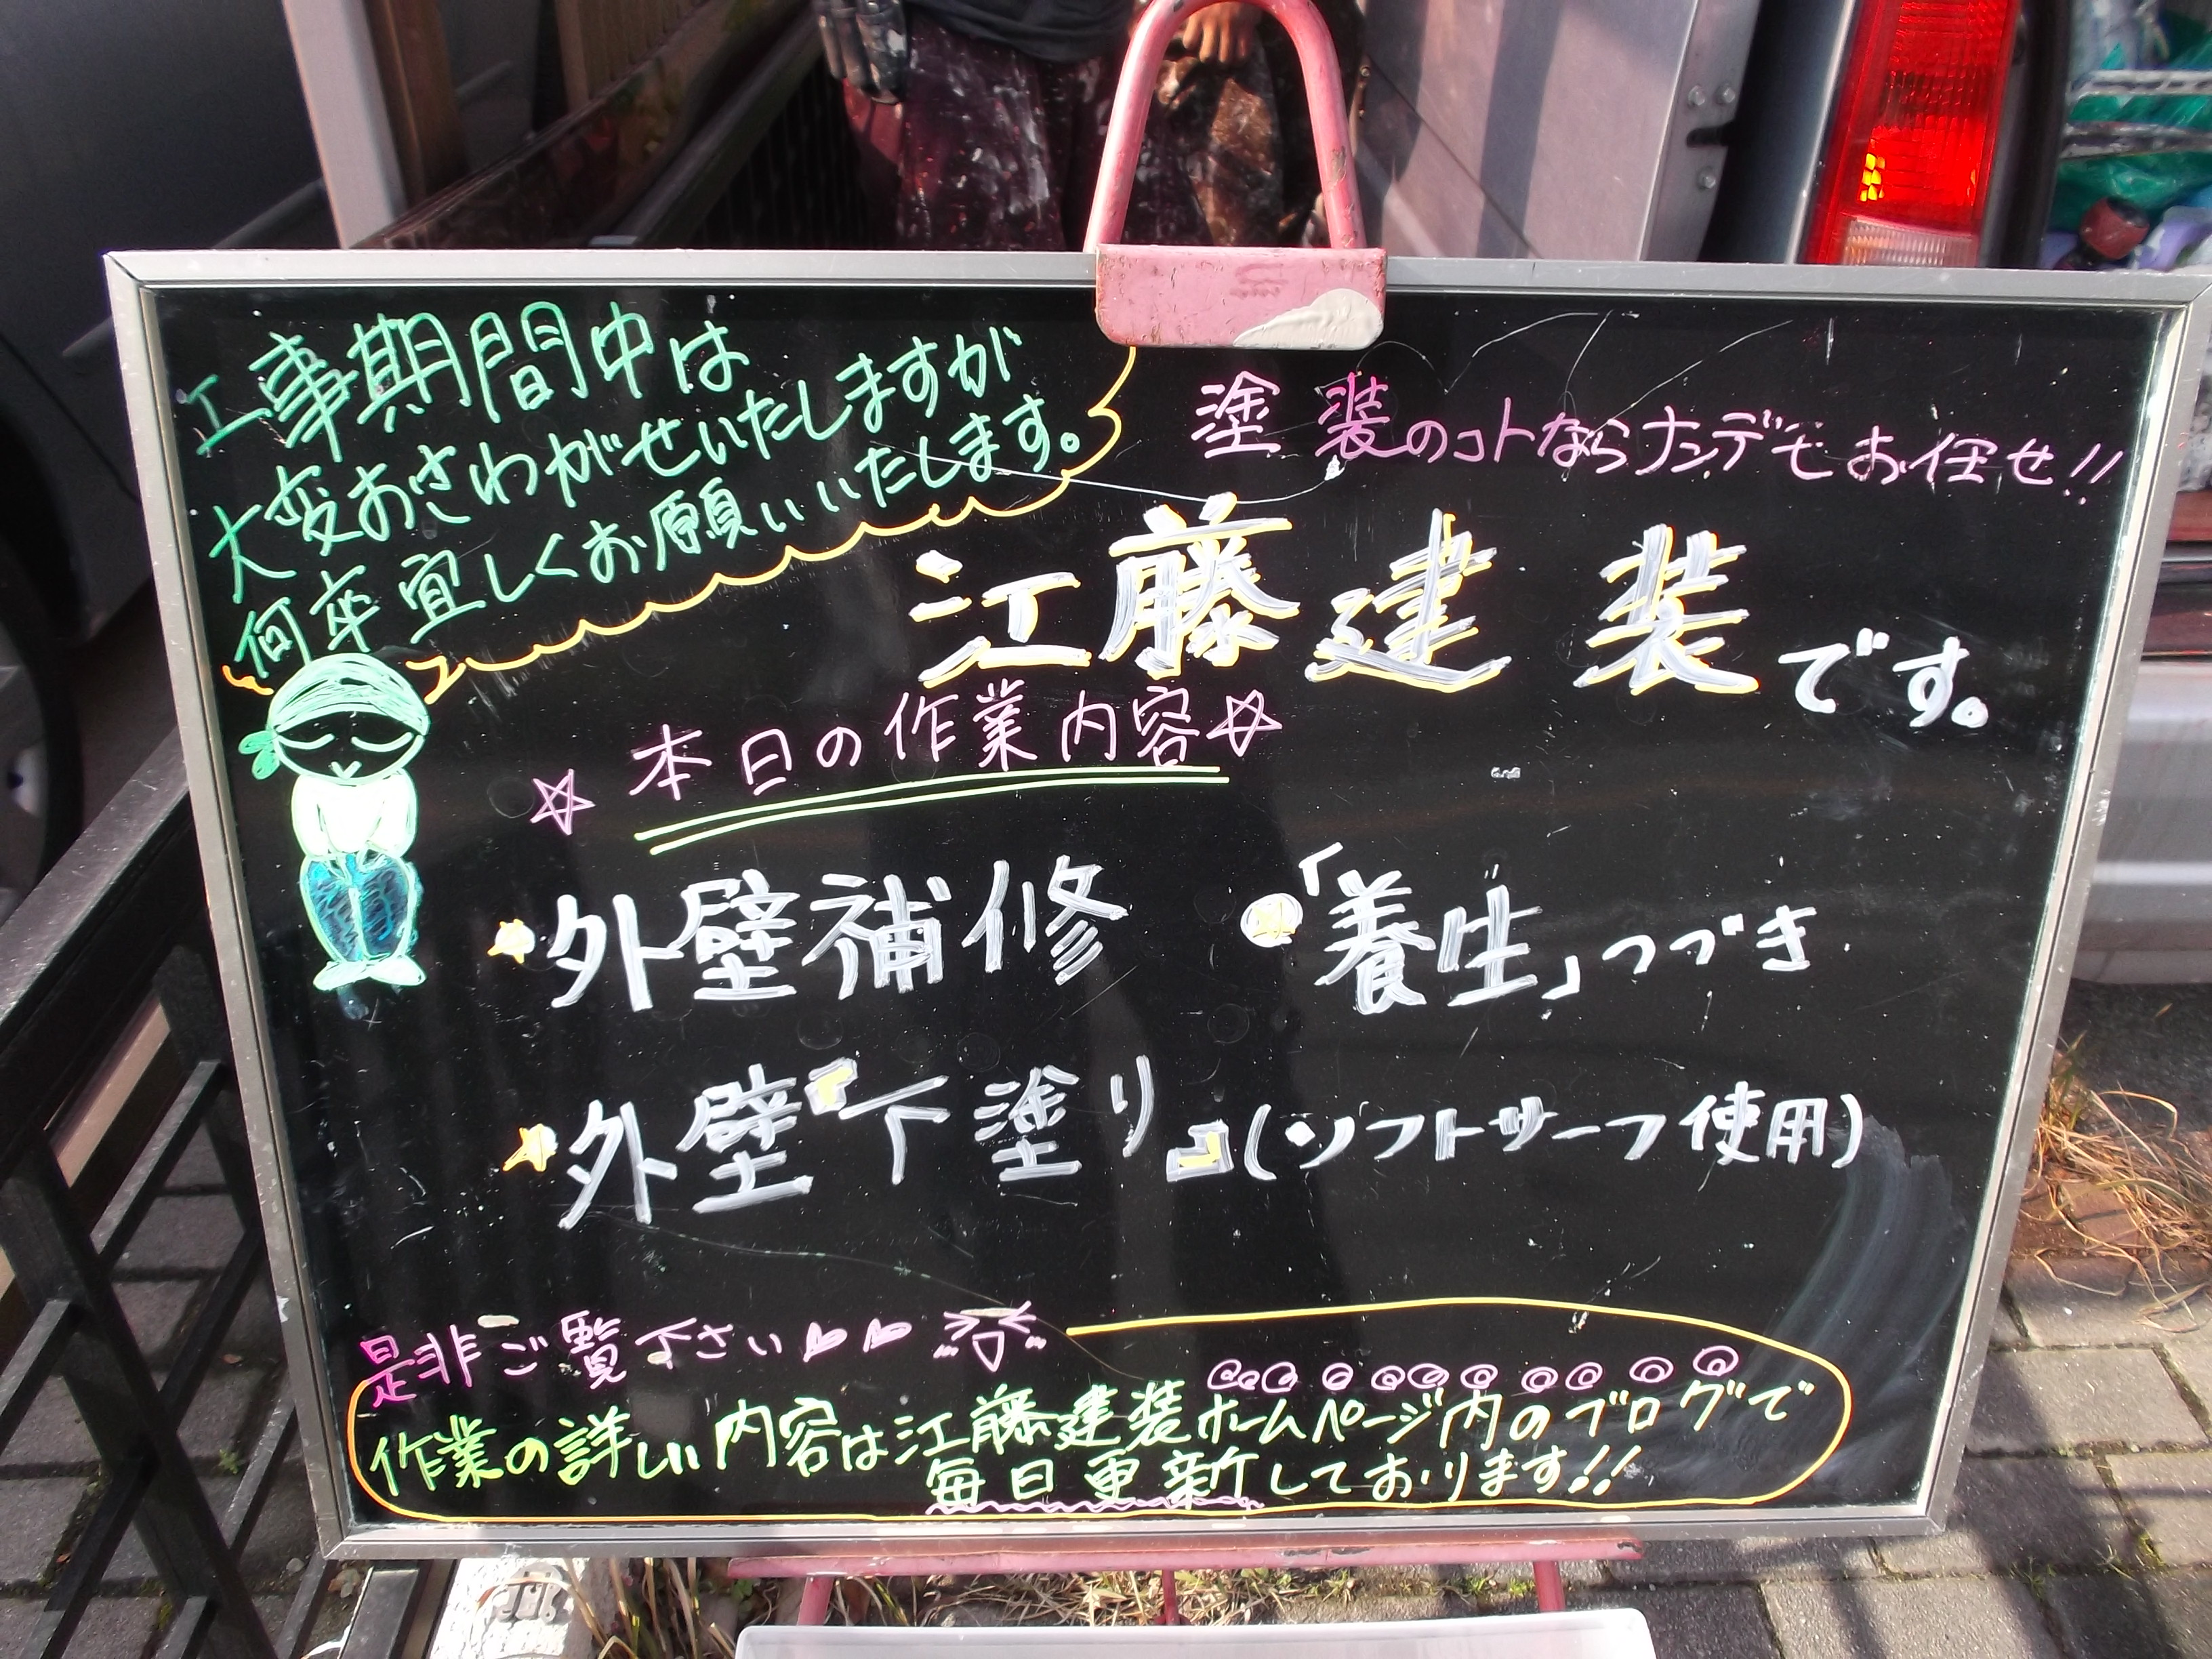 工事期間中は
大変おさわがせいたしますが
何卒宜しくお願いいたします。
塗装のコトならナンデモお任せ!!
江藤建装です。
☆本日の作業内容☆
外壁補修 「養生」つづき
外壁『下塗り』(ソフトサーフ使用)
是非ご覧下さい
作業の詳しい内容は江藤建装ホームページ内のブログで
毎日更新しております!!